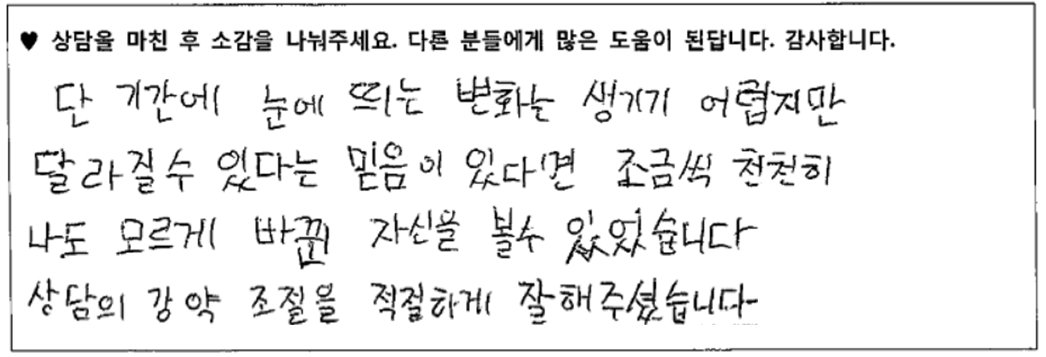 ♥ 상담을 마친 후 소감을 나눠주세요. 다른 분들에게 많은 도움이 된답니다. 감사합니다.
단 기간에 눈에 띄는 변화는 생기기 어렵지만
달라질수 있다는 믿음이 있다면 조금씩 천천히
나도 모르게 바뀐 자신을 볼수 있었습니다
상담의 강약 조절을 적절하게 잘해주셨습니다